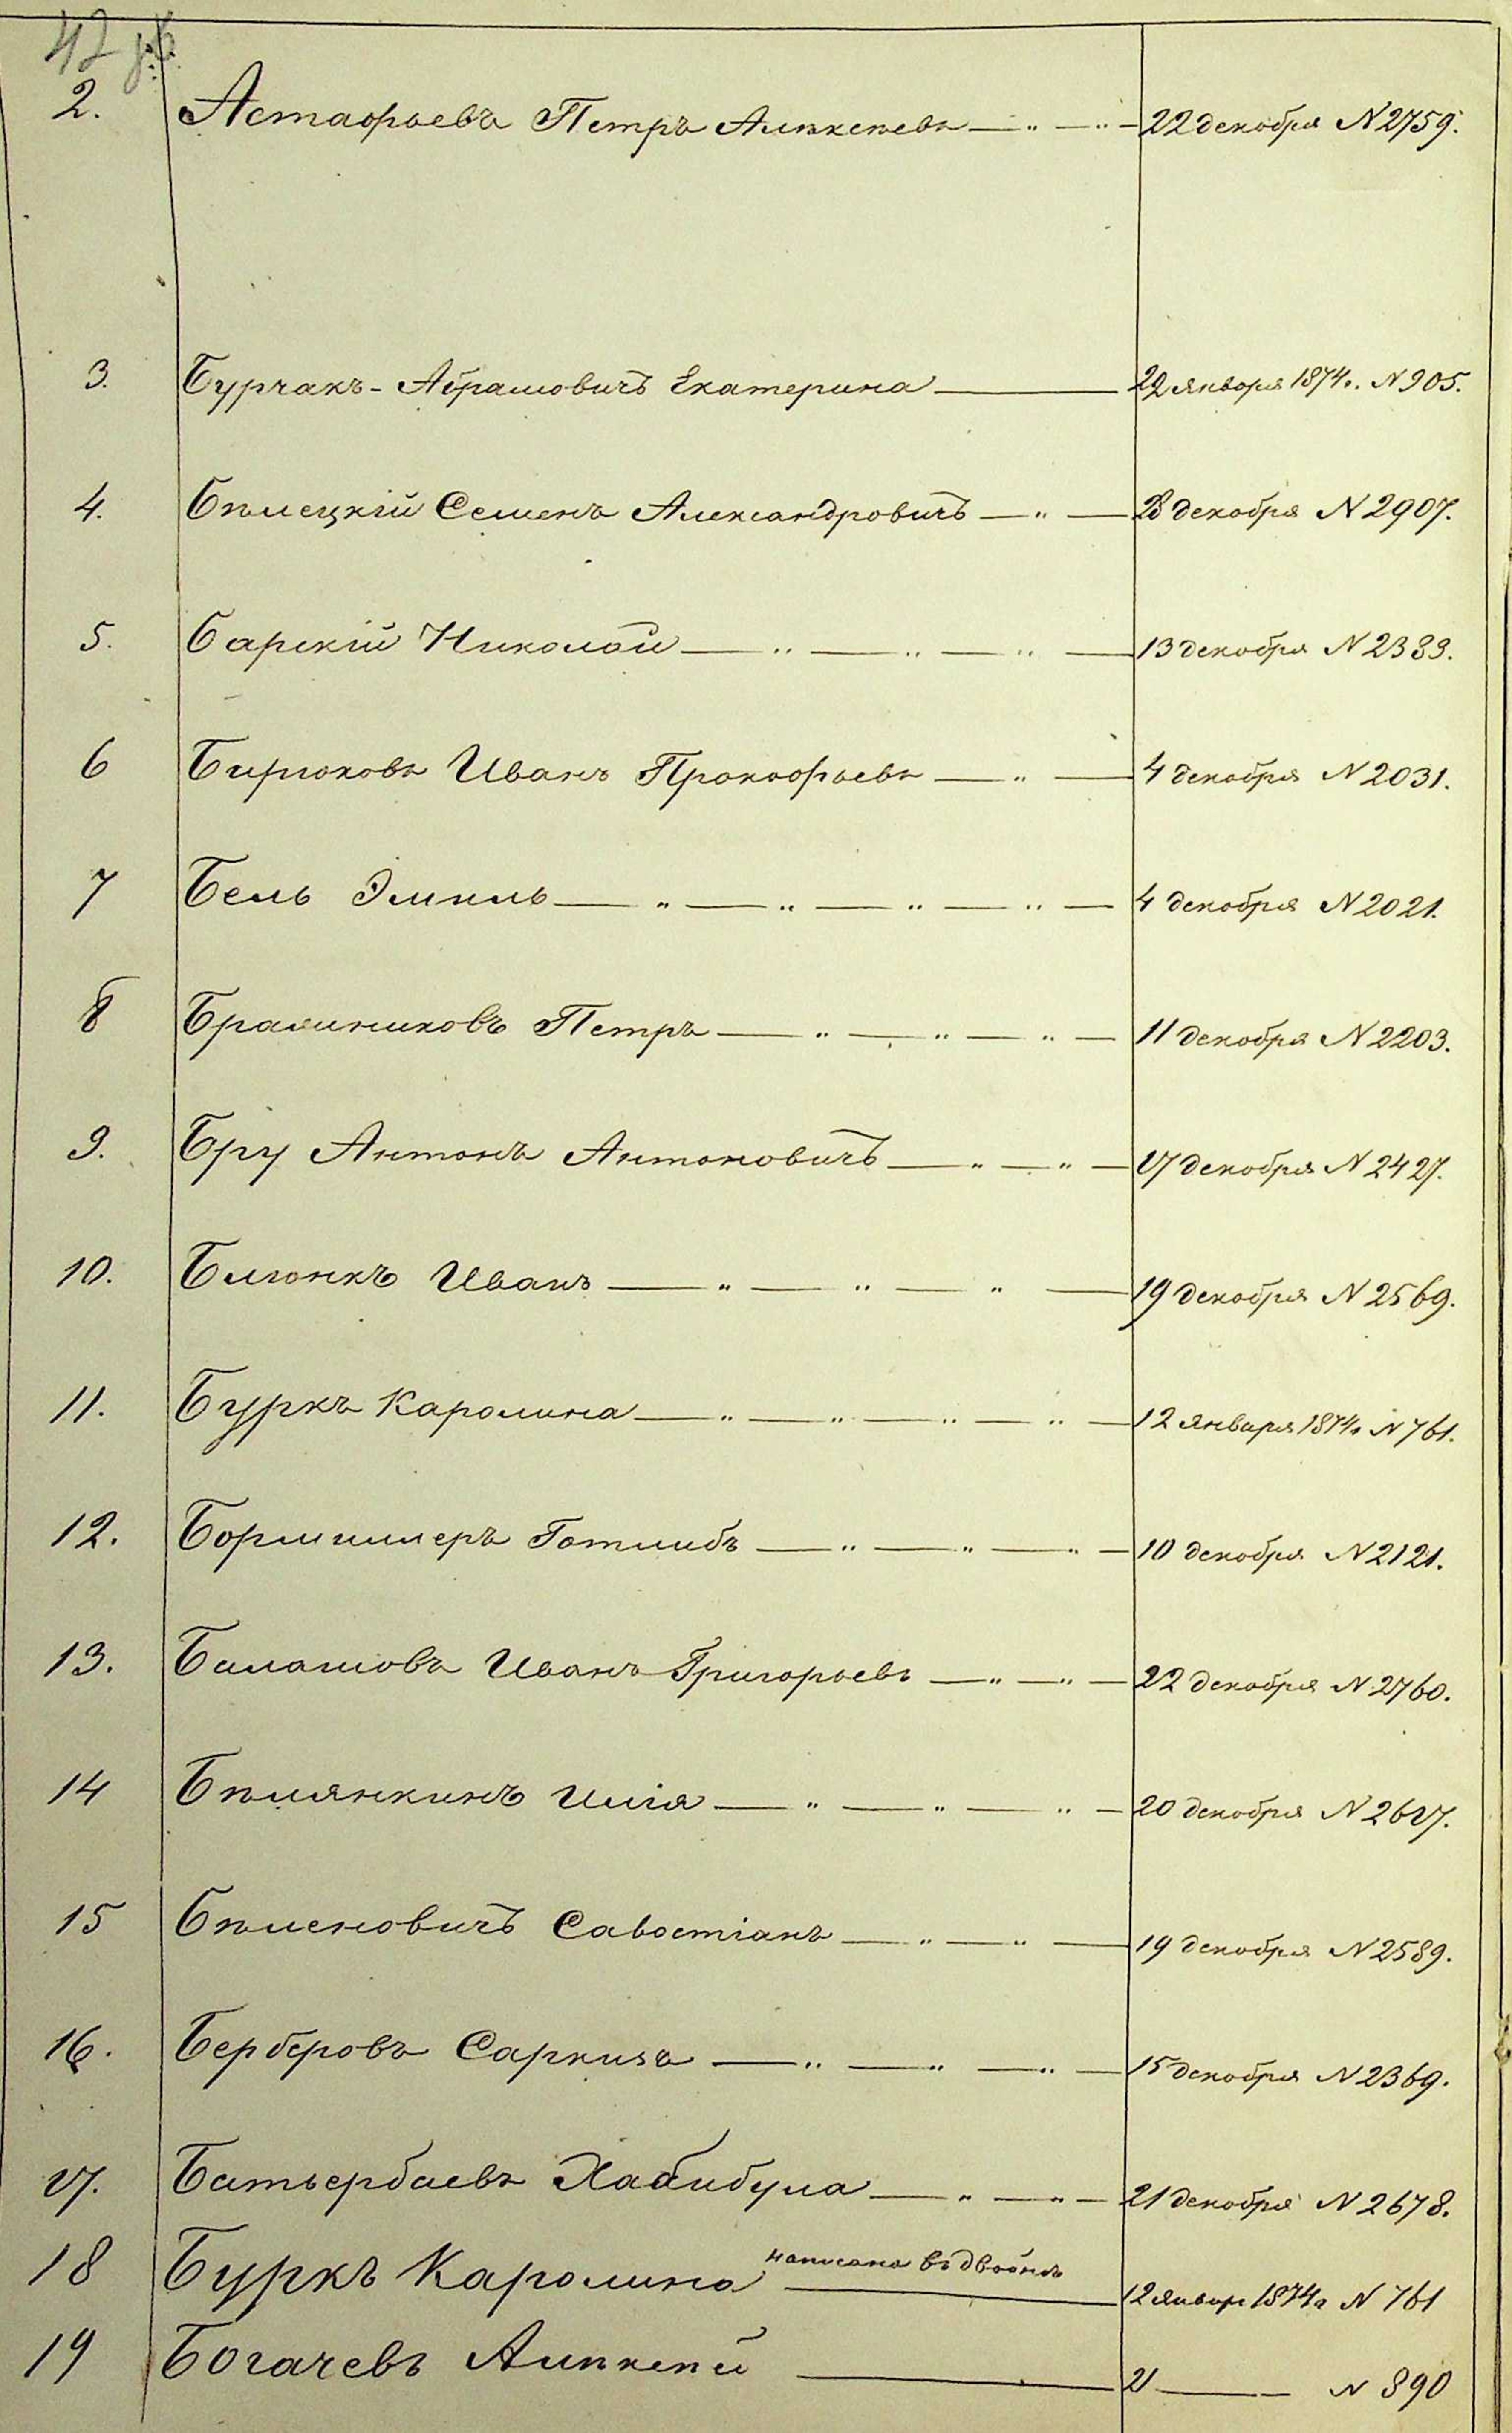 42 об.
2. Астафьевъ Петръ Алѣксѣевъ — „ — „ — 22 декабря N 2759.
3. Бурчакъ-Абрамовичъ Екатерина — 22 января 1874 г. N 905.
4. Бѣлецкій Семенъ Александровичъ — „ — 28 декабря N 2907.
5. Барскій Николай — „ — „ — „ — 13 декабря N 2333.
6 Бирюковъ Иванъ Прокофьевъ — „ — 4 декабря N 2031.
7 Бель Эмиль — „ — „ — „ — „ — 4 декабря N 2021.
8 Бралиниковъ Петръ — „ — „ — „ — 11 декабря N 2203.
9. Бру Антонъ Антоновичъ — „ — „ — 17 декабря N 2427.
10. Блюнкъ Иванъ — „ — „ — „ — 19 декабря N 2569.
11. Буркъ Каролина — „ — „ — „ — „ — 12 января 1874 г. N 761.
12. Боршиллеръ Готлибъ — „ — „ — „ — 10 декабря N 2121.
13. Балашовъ Иванъ Григорьевъ — „ — „ — 22 декабря N 2760.
14 Бѣлянкинъ Илія — „ — „ — „ — 20 декабря N 2617.
15 Бѣленовичъ Савостіанъ — „ — „ — 19 декабря N 2589.
16. Берберовъ Саркизъ — „ — „ — „ — 15 декабря N 2369.
17. Батьербаевъ Хабибула — „ — „ — 21 декабря N 2678.
18 Буркъ Каролина написана въ двойнѣ — 12 январ 1874 г N 761
19 Богачевъ Алѣксѣй — 21 — N 890